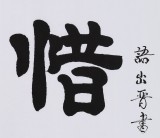 惜
語出晉書